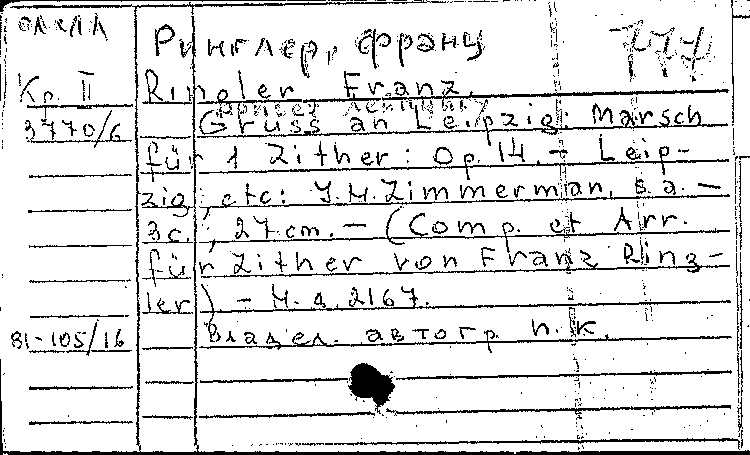 Ринглер, Франц
777
Кр. II
3770/6
Ringler Franz.
Привет Лейпцигу
Gruss an Leipzig: Marsch
für 1 Zither: Op. 14. – Leip-
zig, etc: J.H. Zimmerman, s.a. –
3с.; 27 cm. – (Comp. et Arr.
für Zither von Franz Ring-
ler) – Н.д. 2167.
81-105/16
Владел. автогр. н.к.